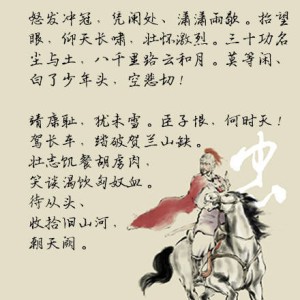 怒发冲冠，凭阑处、潇潇雨歇。抬望
眼，仰天长啸，壮怀激烈。三十功名
尘与土，八千里路云和月。莫等闲、
白了少年头，空悲切！
靖康耻，犹未雪。臣子恨，何时灭！
驾长车，踏破贺兰山缺。
壮志饥餐胡虏肉，
笑谈渴饮匈奴血。
待从头、
收拾旧山河，
朝天阙。
忠